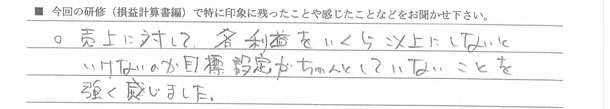 ■ 今回の研修（損益計算書編）で特に印象に残ったことや感じたことなどをお聞かせ下さい。
○ 売上に対して、各利益をいくら以上にしないと
いけないのか目標設定がちゃんとしていないことを
強く感じました。